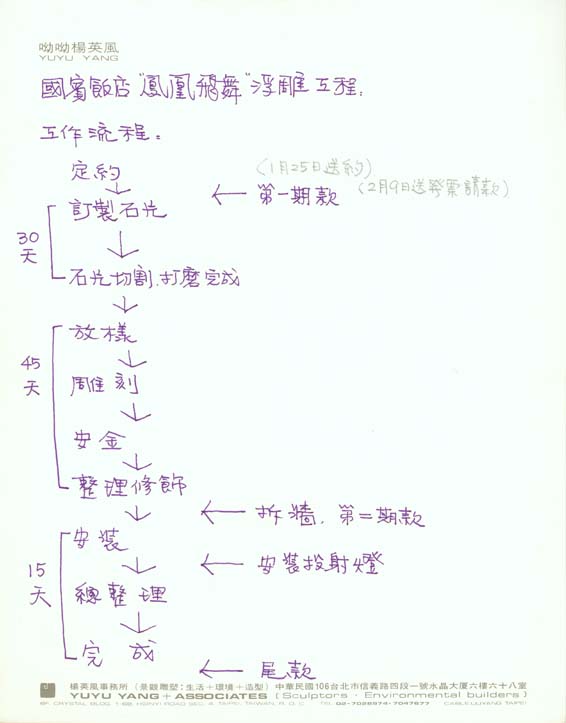 呦呦楊英風
YUYU YANG
國賓飯店"鳳凰飛舞"浮雕工程:
工作流程:
定約
(1月25日送約)
← 第一期款 (2月9日送發票請款)
訂製石片
30天
石片切割.打磨完成
放樣
45天
雕刻
安金
整理修飾
← 拆牆.第二期款
安裝
← 安裝投射燈
15天
總整理
完成
← 尾款
楊英風事務所(景觀雕塑:生活+環境+造型)中華民國106台北市信義路四段一號水晶大厦六樓六十八室
YUYU YANG + ASSOCIATES (Sculptors · Environmental builders)
6F. CRYSTAL BLDG. 1-68, HSINYI ROAD SEC. 4. TAIPEI, TAIWAN, R. O. C. TEL: 02-7028574·7047677 CABLE:UUYANG TAIPEI